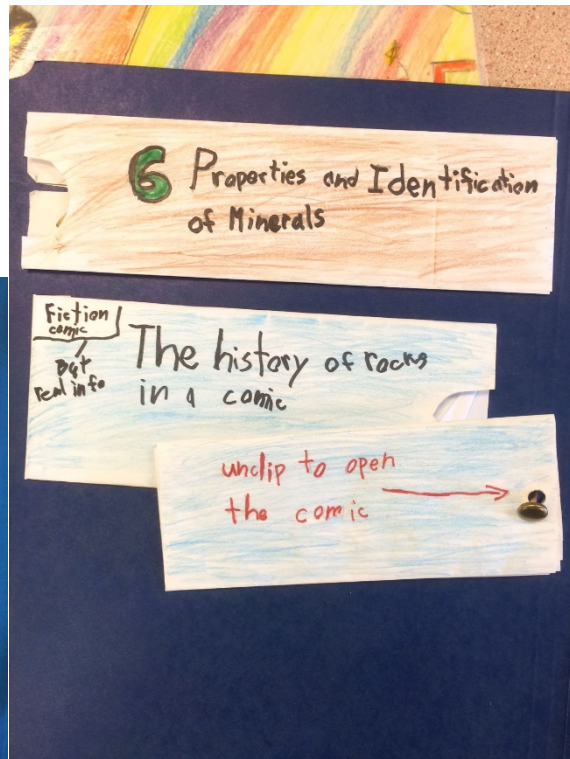 6 Properties and Identification
of Minerals
Fiction
comic
But
real info
The history of rocks
in a comic
unclip to open
the comic